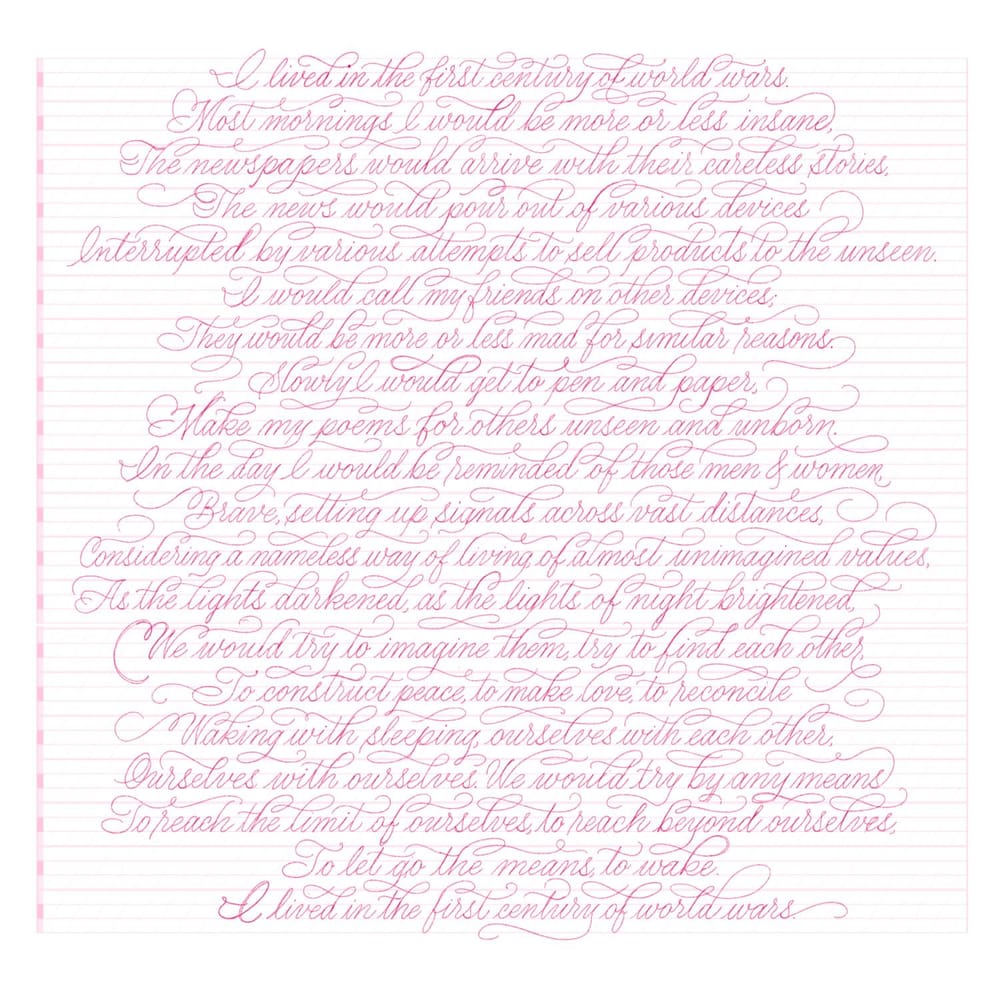 I lived in the first century of world wars.
Most mornings I would be more or less insane,
The newspapers would arrive with their careless stories,
The news would pour out of various devices
Interrupted by various attempts to sell products to the unseen.
I would call my friends on other devices;
They would be more or less mad for similar reasons.
Slowly I would get to pen and paper,
Make my poems for others unseen and unborn.
In the day I would be reminded of those men & women,
Brave, setting up signals across vast distances,
Considering a nameless way of living of almost unimagined values,
As the lights darkened, as the lights of night brightened,
We would try to imagine them, try to find each other,
To construct peace, to make love, to reconcile
Waking with sleeping, ourselves with each other,
Ourselves with ourselves. We would try by any means
To reach the limit of ourselves, to reach beyond ourselves,
To let go the means, to wake.
I lived in the first century of world wars